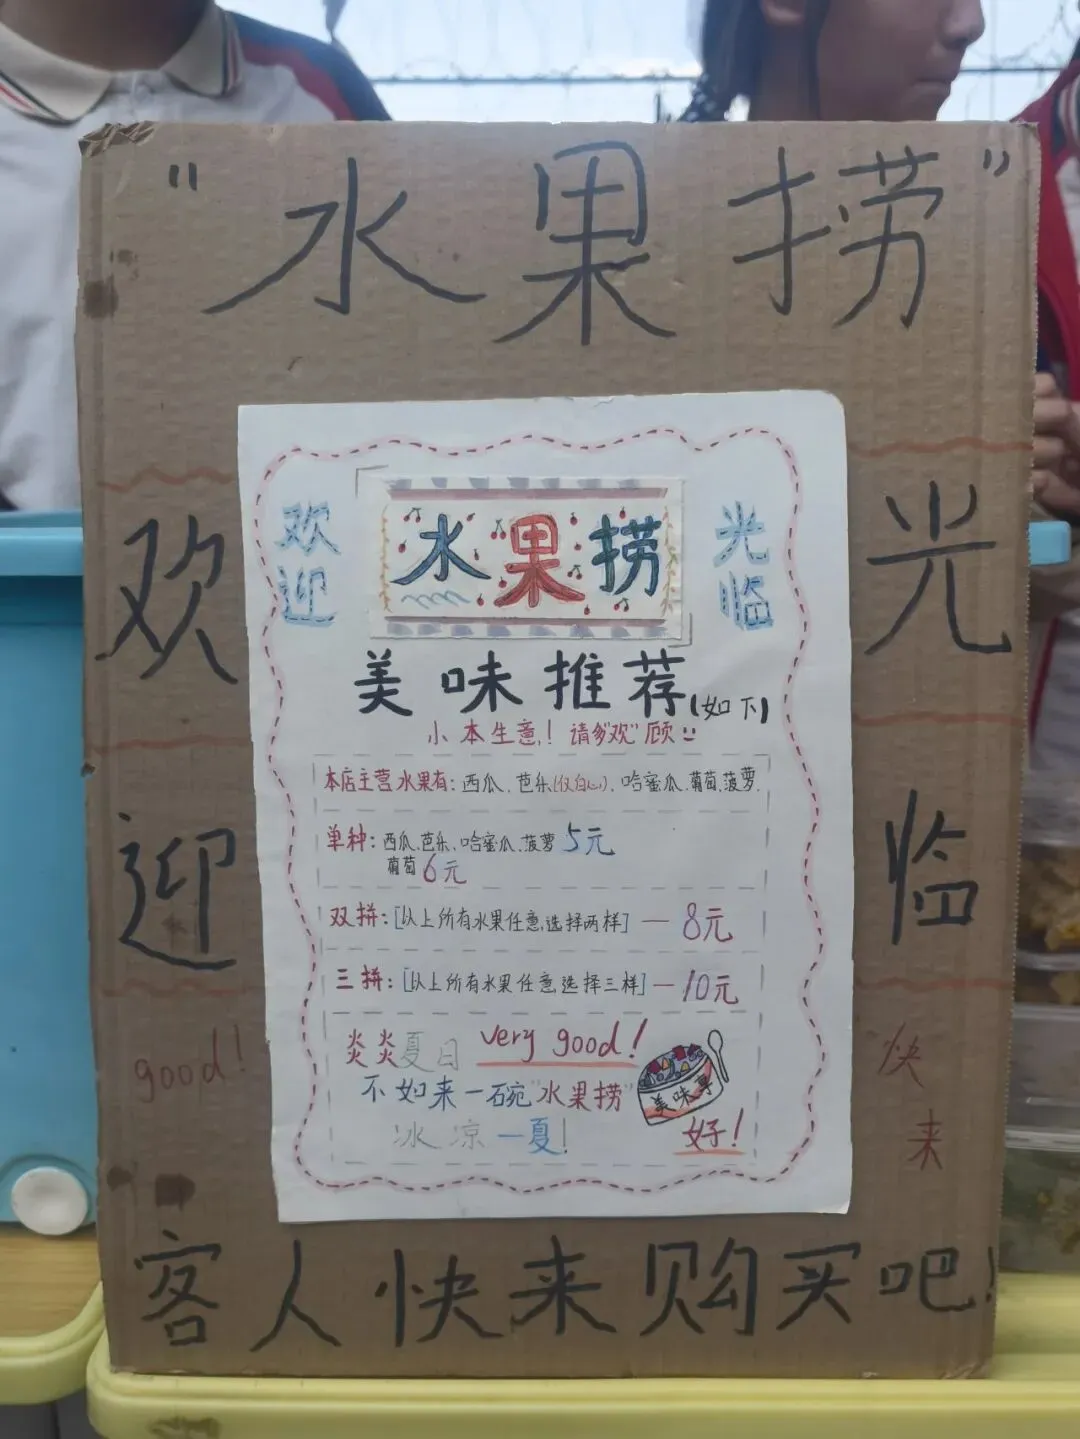 "水果捞"
欢迎
光临
欢迎
水果捞
光临
美味推荐(如下)
小本生意!请多"欢"顾
本店主营水果有:西瓜、芭乐(仅白心)、哈蜜瓜、葡萄、菠萝.
单种:西瓜、芭乐、哈蜜瓜、菠萝 5元
葡萄 6元
双拼:[以上所有水果任意选择两样]—8元
三拼:[以上所有水果任意选择三样]—10元
炎炎夏日 very good!
不如来一碗"水果捞"
冰凉一夏!
美味享
好!
good!
快来
客人快来购买吧!